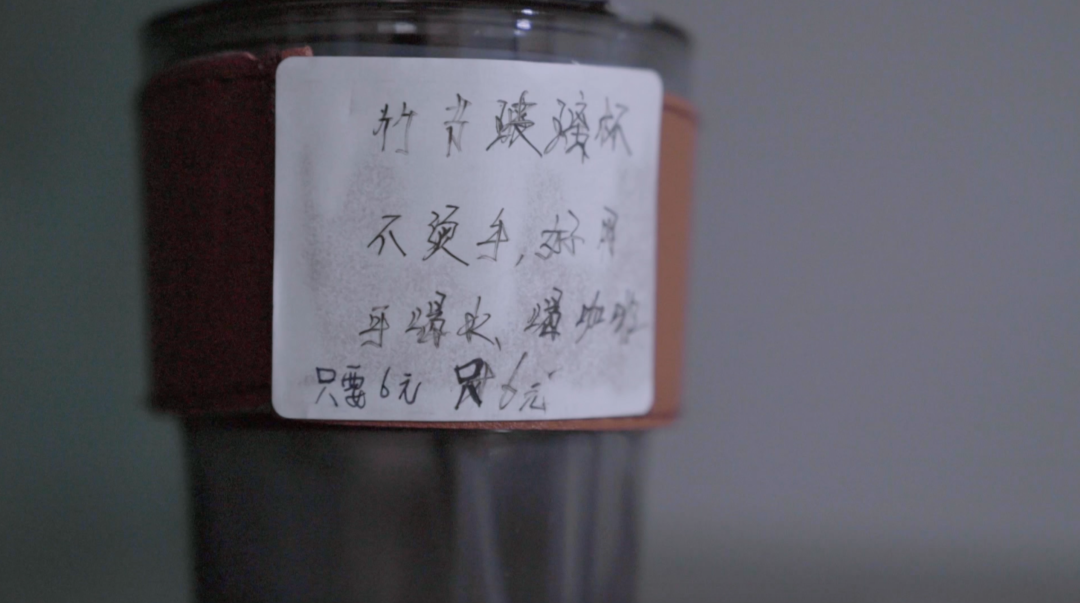 竹节玻璃杯
不烫手，好用
手爆水、爆咖啡
只要6元 只6元